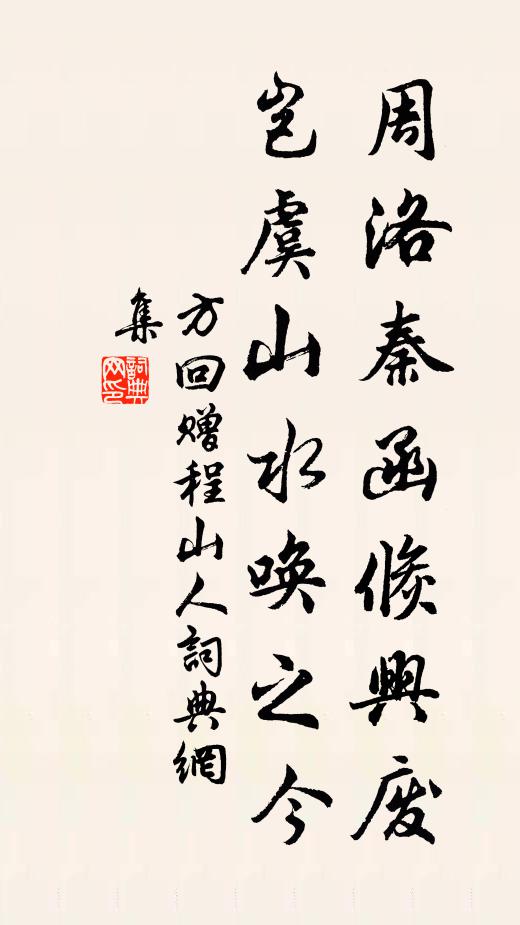 周洛秦函倏興废
岂虞山水唤之今
方回赠程山人詞典網
集
詞典
网印